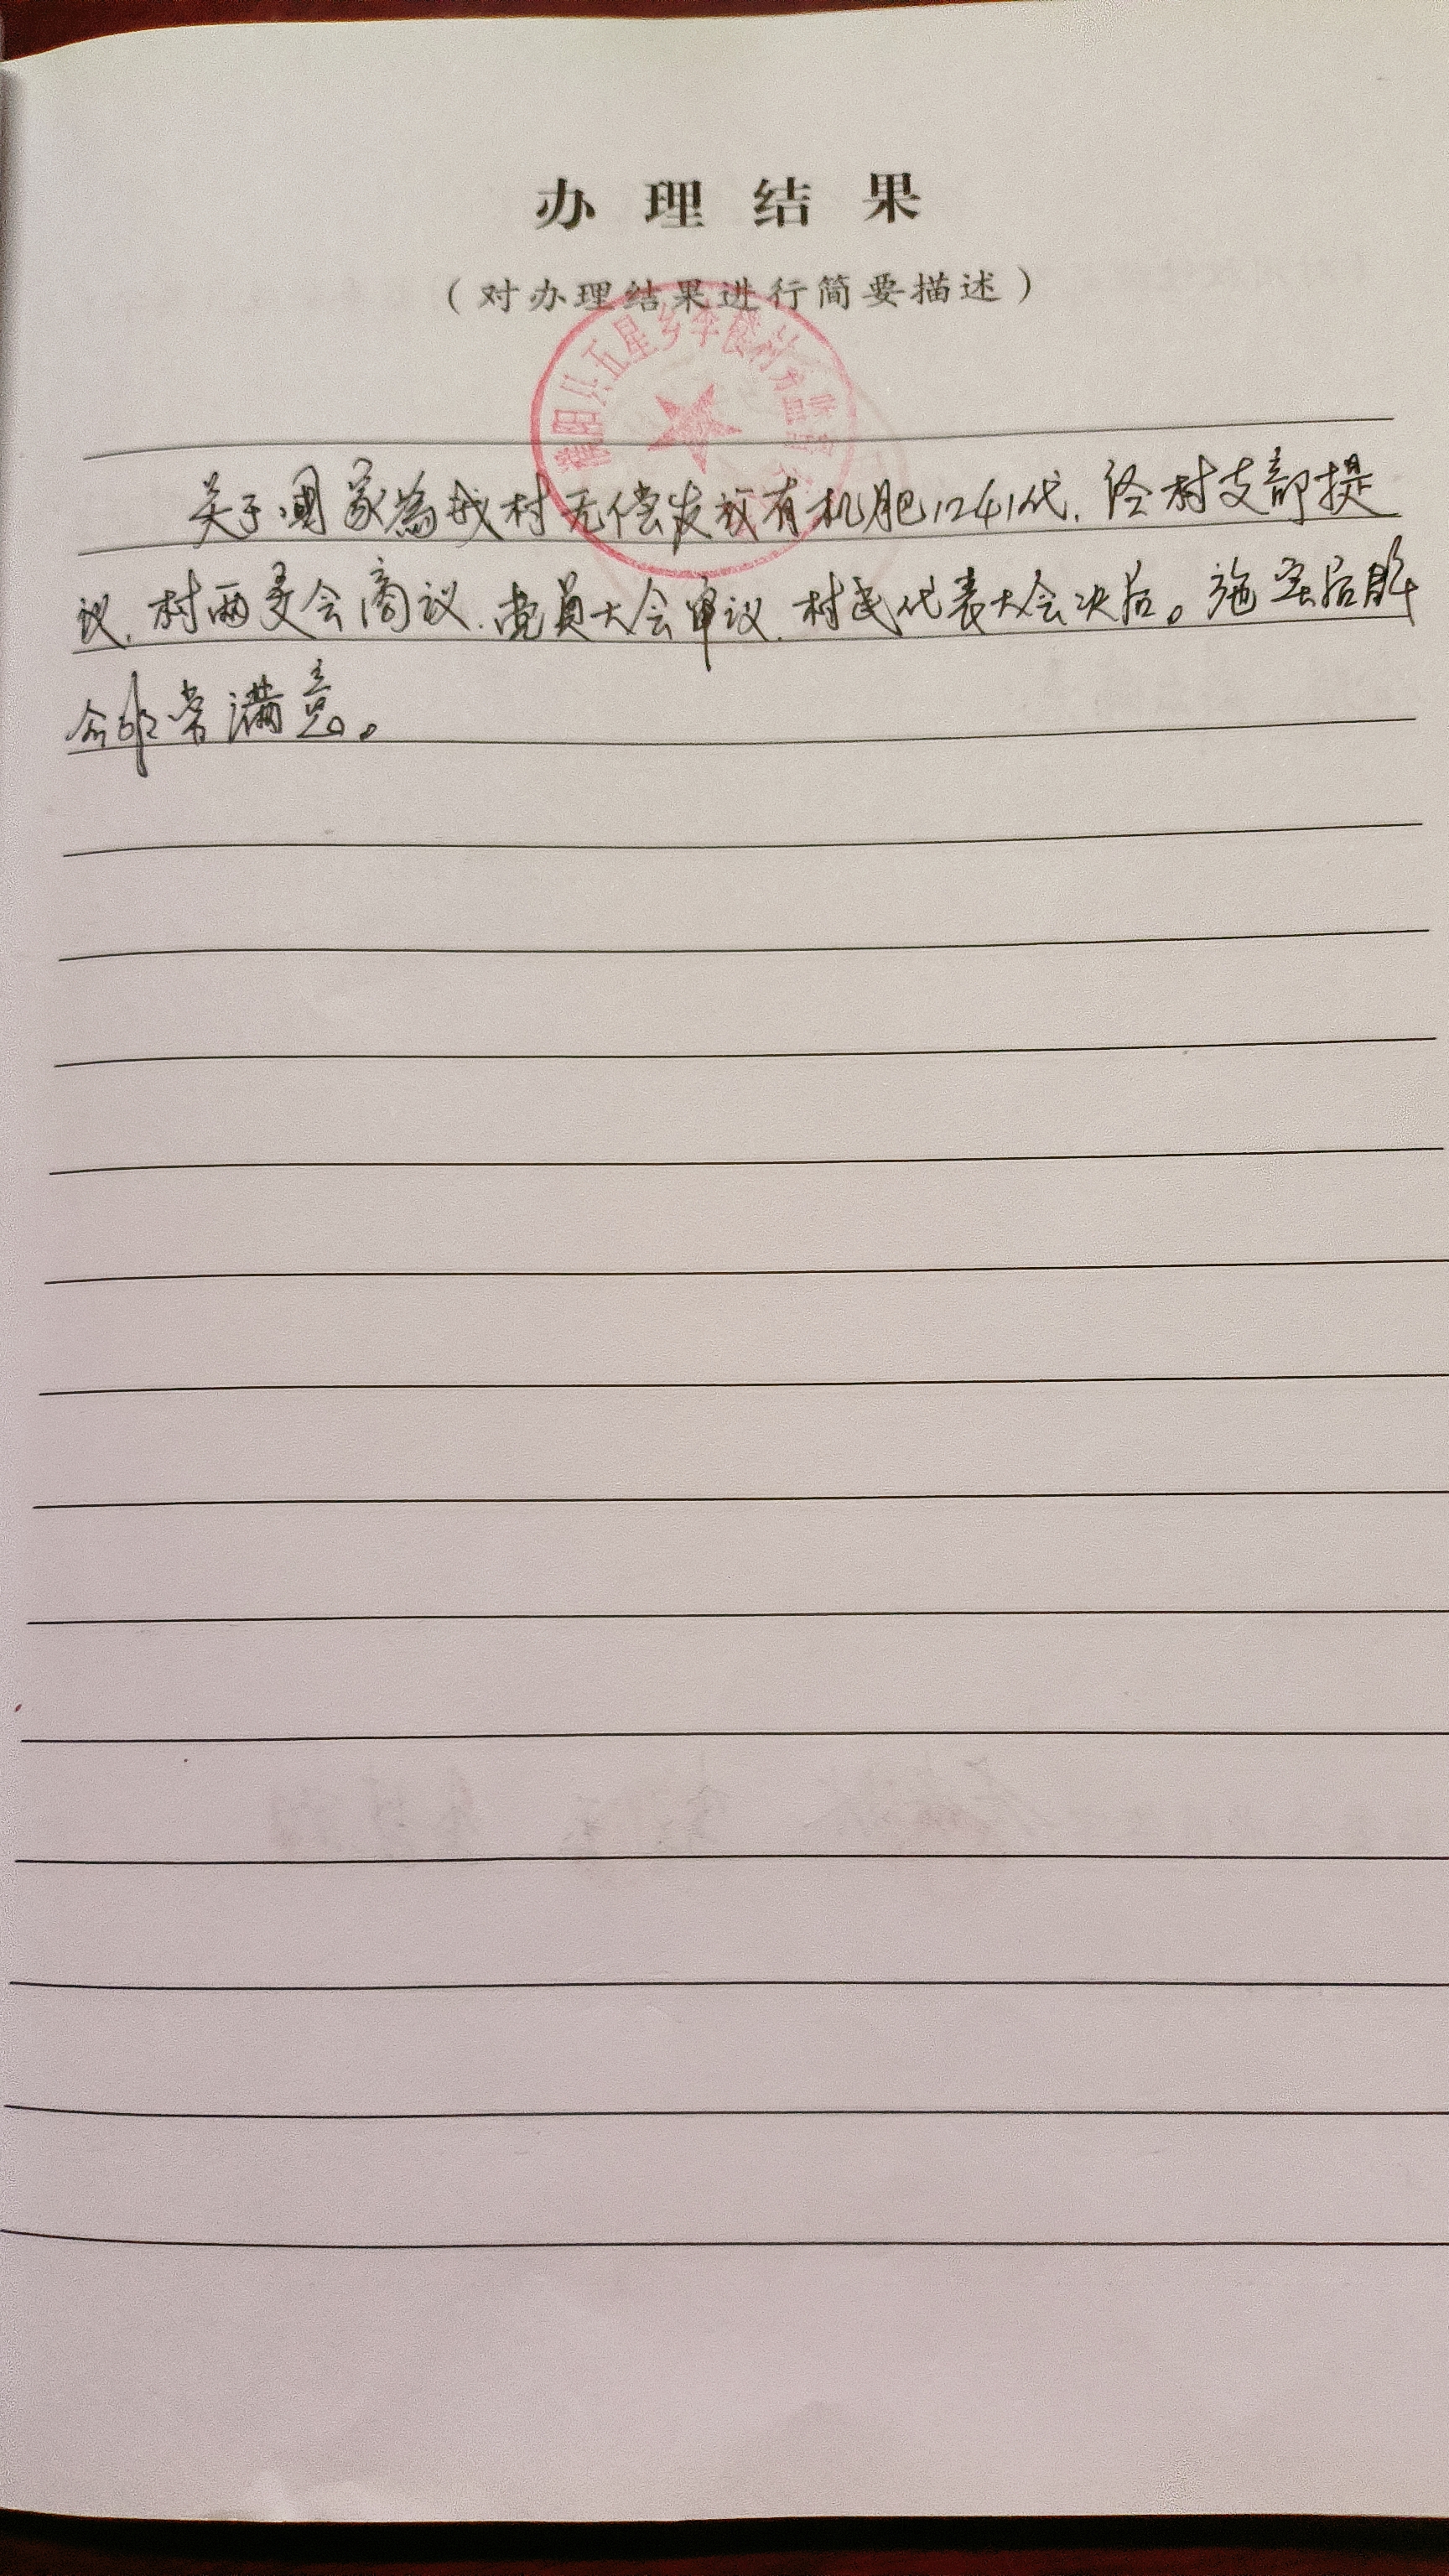 办理结果
（对办理结果进行简要描述）
濮阳县五星乡李楼村务监督
关于国家為我村无偿发放有机肥1241代.经村支部提
议.村两委会商议.党员大会审议.村民代表大会决后。施实后群
众非常满意。